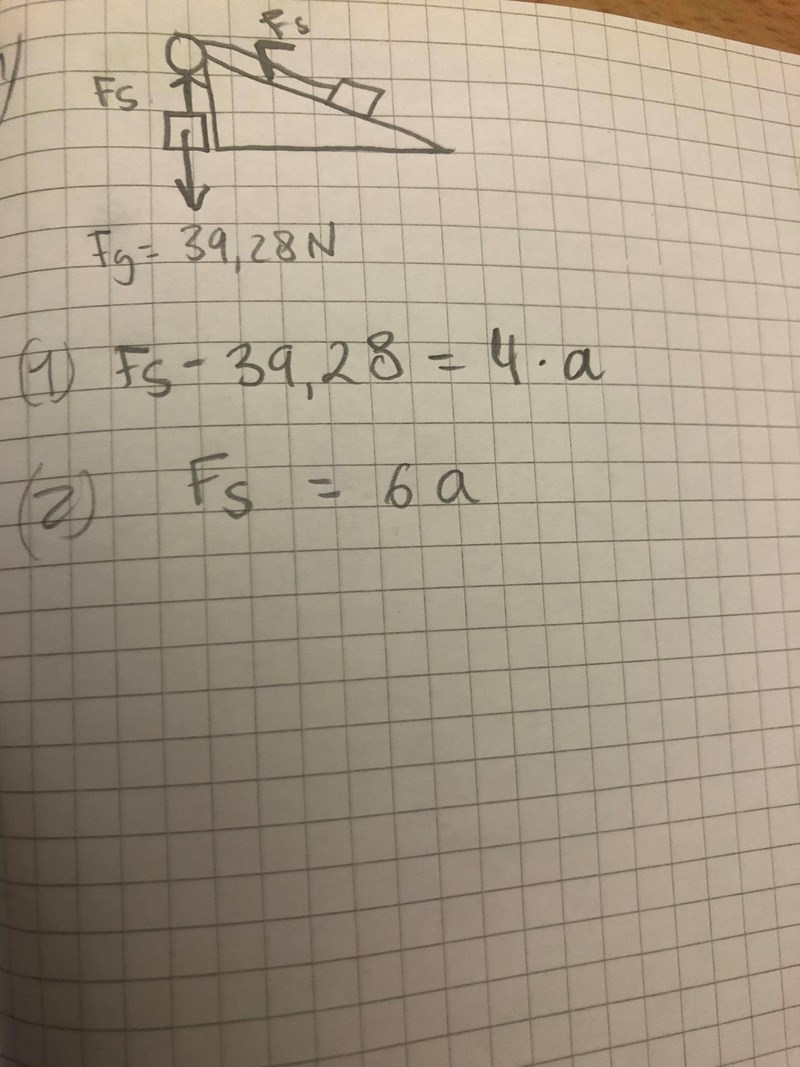 Fs
Fs
Fg = 39,28 N
(1) Fs - 39,28 = 4 · a
(2) Fs = 6 a